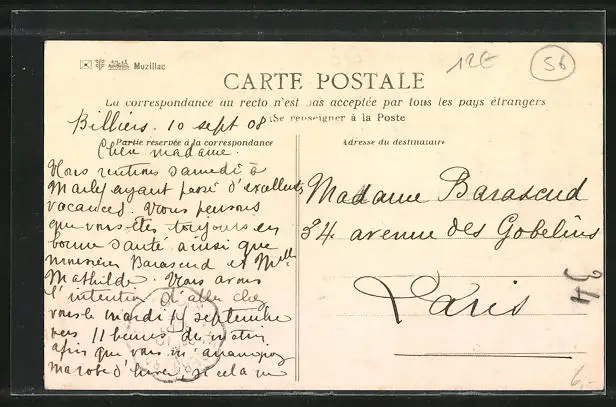 Muzillac
12E
56
CARTE POSTALE
La correspondance au recto n'est pas acceptée par tous les pays étrangers
(Se renseigner à la Poste
Billiers. 10 sept 08
Partie réservée à la correspondance
Adresse du destinataire
Chère madame.
Nous rentrons samedi à
Marly ayant passé d'excellentes
vacances. Nous pensons
que vous êtes toujours en
bonne santé ainsi que
Barascud et Melle
Mathilde. Nous avons
l'intention d'aller chez
vous le mardi septembre
vers 11 heures du matin
afin que vous m'arrangiez
ma robe d'hiver, si cela ne
Madame Barascud
34 avenue des Gobelins
Paris
34
6,-